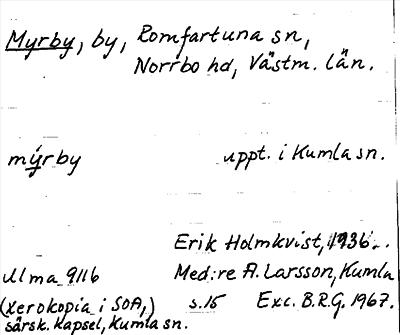 Myrby, by, Romfartuna sn,
Norrbo hd, Västm. län.
mýrby uppt. i Kumla sn.
Erik Holmkvist, 1936.
Ulma 9116 Med: re A. Larsson, Kumla
(xerokopia i SOA,) s.15 Exc. B.R.G. 1967.
särsk. kapsel, Kumla sn.